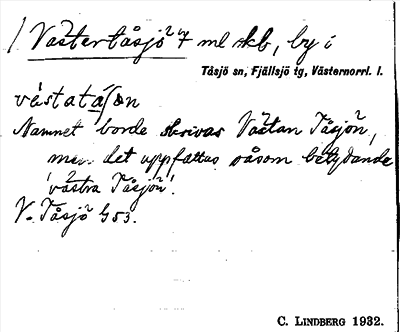 Västertåsjö 2/7 ml skb, by i
Tåsjö sn, Fjällsjö tg, Västernorrl. l.
Namnet borde skrivas Västan Tåsjön,
men det uppfattas såsom betydande
'västra Tåsjön'.
V. Tåsjö G 53.
C. LINDBERG 1932.